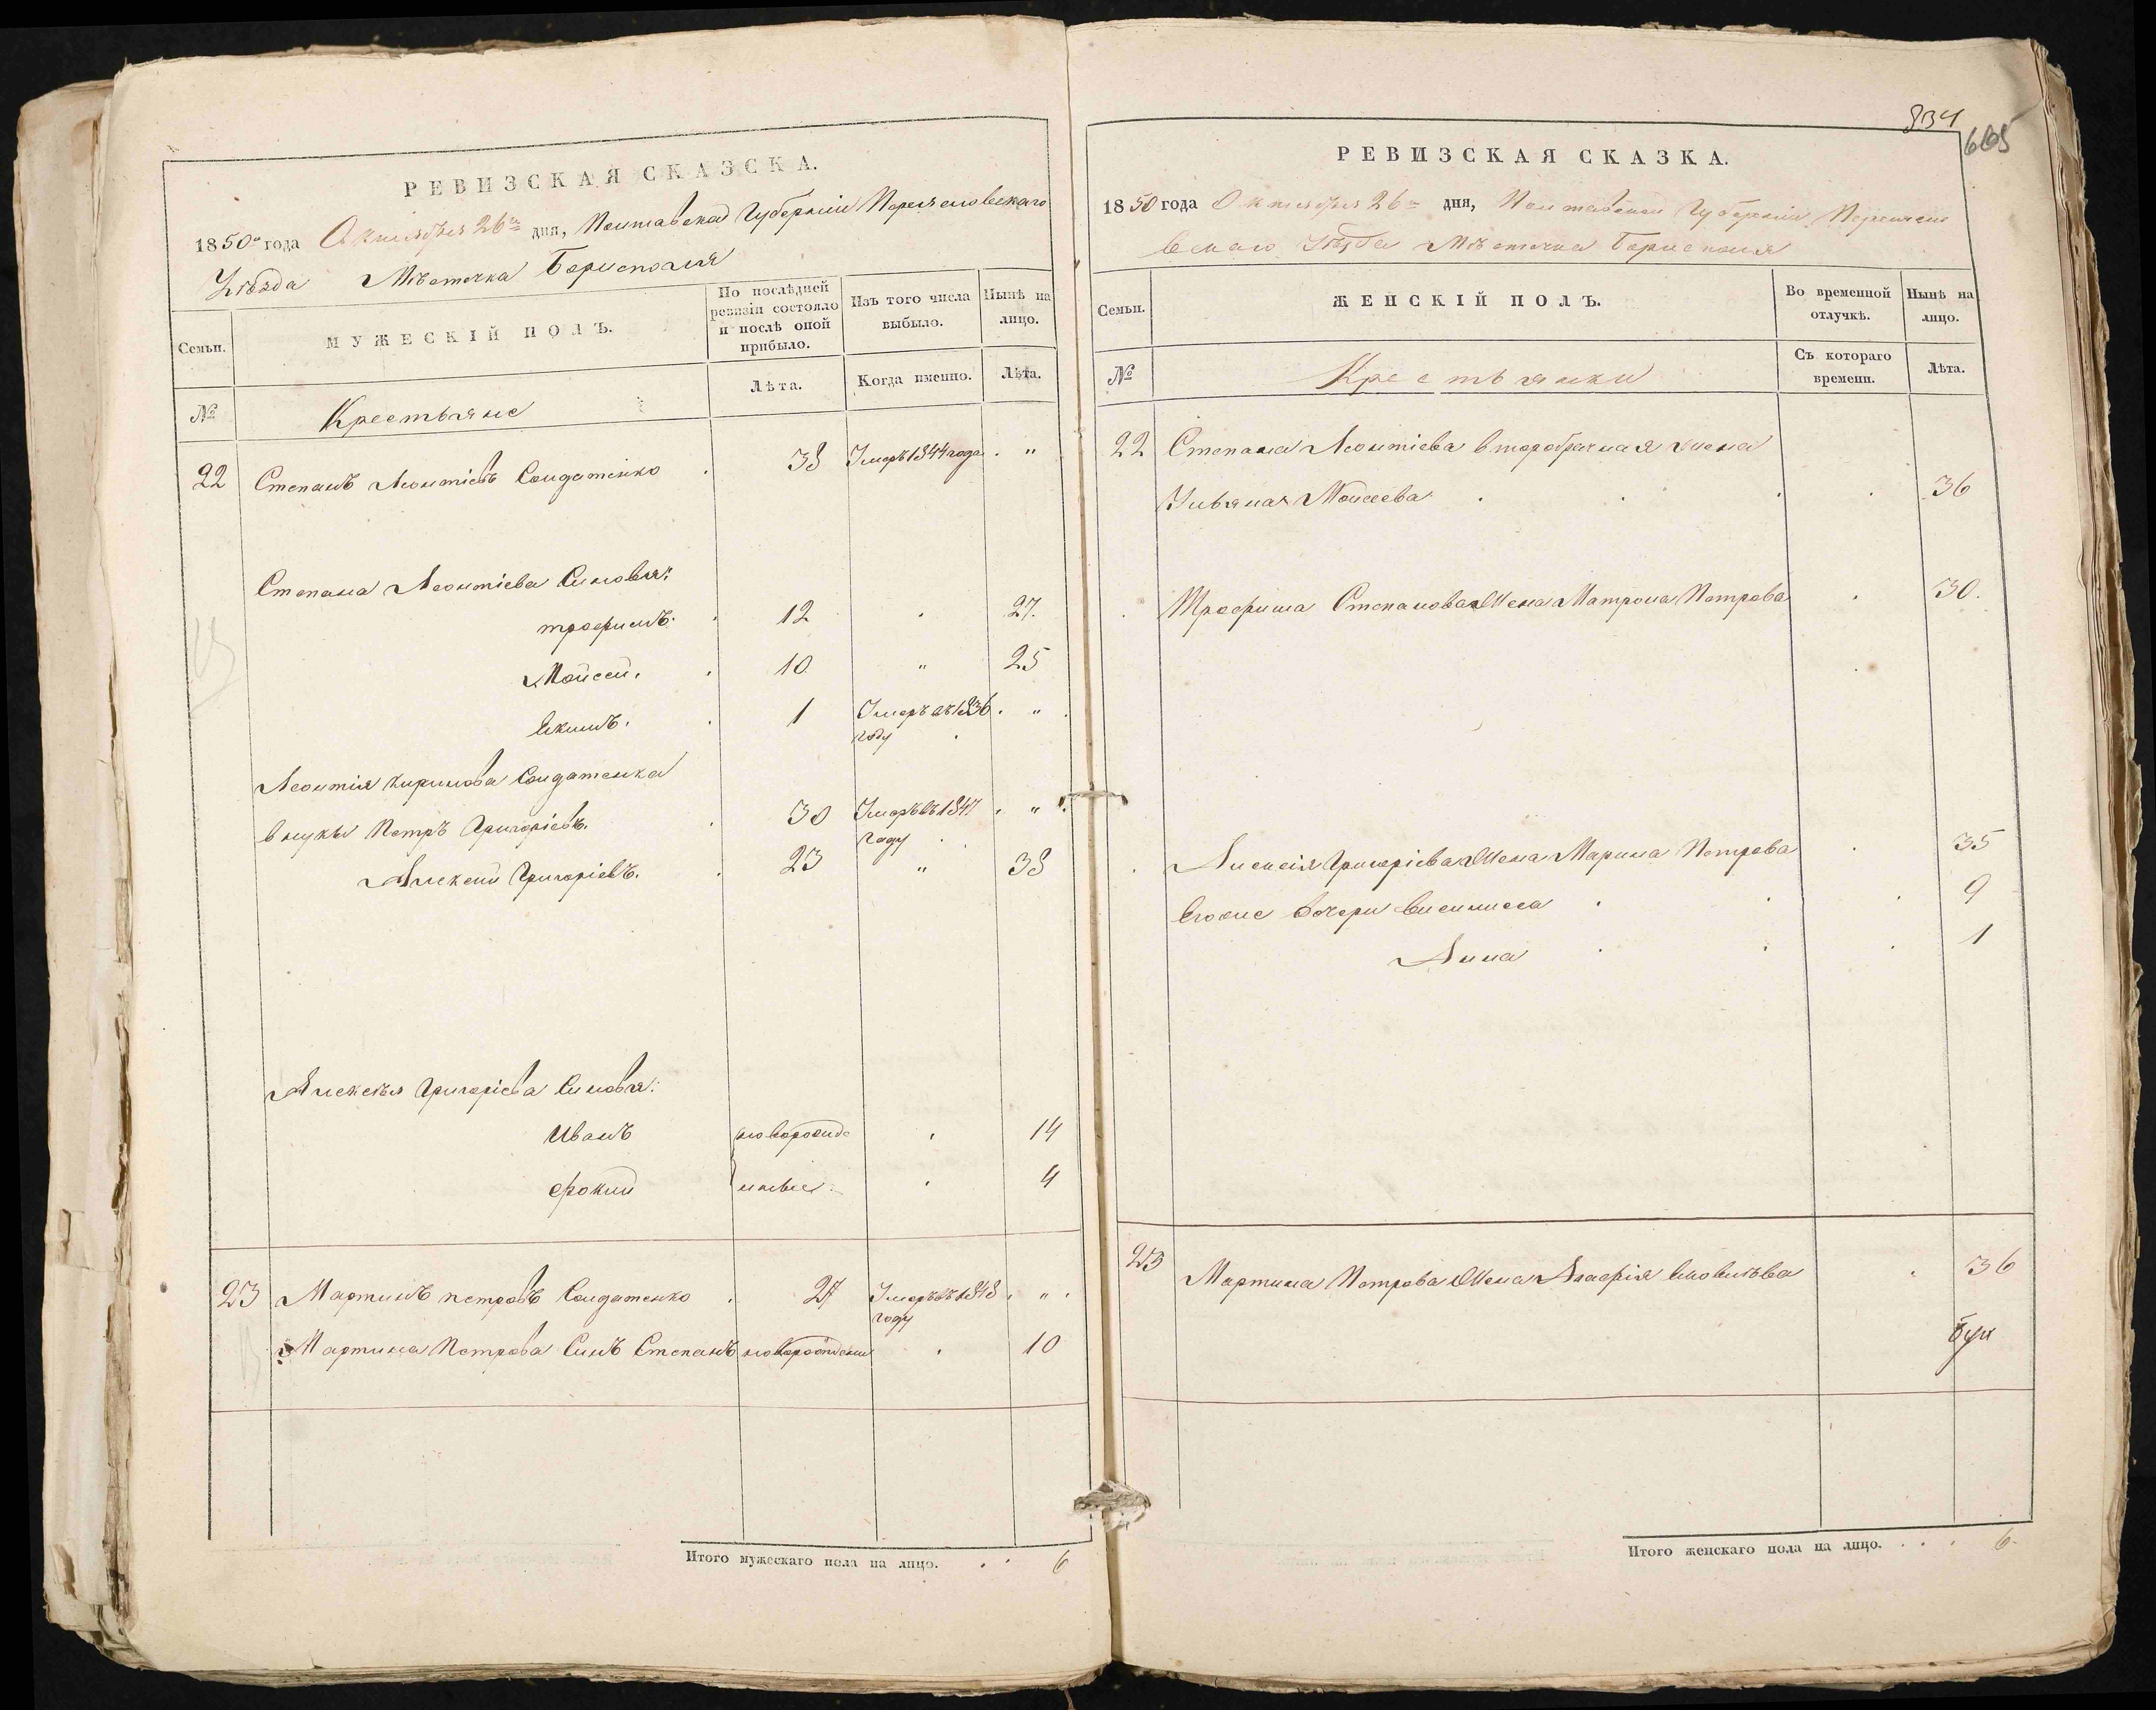 РЕВИЗСКАЯ СКАЗСКА.
1850го года Октября 26го дня, Полтавской Губерніи Переяславскаго
Уѣзда Мѣстечка Борисполя
Семьи.
МУЖЕСКІЙ ПОЛЪ.
По послѣдней ревизіи состояло и послѣ оной прибыло.
Изъ того числа выбыло.
Нынѣ на лицо.
№
Крестьяне
Лѣта.
Когда именно.
Лѣта.
22 Степанъ Леонтіевъ Солдатенко . 38 Умеръ 1844 года . "
Степана Леонтіева Сыновья:
трофимъ. . 12 . 27.
Мойсей. . 10. " 25
Екимъ. . 1 Умеръ въ 1836 . " .
году .
Леонтія Кирилова Солдатенка
внуки Петръ Григоріевъ. . 30 Умеръ въ 1847 . "
году .
Алексей Григоріевъ. . 23 " 38
Алексѣя Григоріева Сыновья:
Иванъ новорожде . 14
Фокий нные . 4
23 Мартинъ петровъ Солдатенко . 27 Умеръ въ 1848 . " .
году
Мартина Петрова Сынъ Степанъ новорожденый . 10
Итого мужескаго пола на лицо. . . 6
834
665
РЕВИЗСКАЯ СКАЗКА.
1850 года Октября 26го дня, Полтавской Губерніи Переясла
вскаго Уѣзда Мѣстечка Борисполя
Семьи.
ЖЕНСКІЙ ПОЛЪ.
Во временной отлучкѣ.
Нынѣ на лицо.
№
Крестьянки
Съ котораго времени.
Лѣта.
22 Степана Леонтіева второбрачная жена
Ульяна Мойсеева . . . . 36
. Трофима Степанова Жена Матрона Петрова . 30.
. Алексія Григоріева Жена Марина Петрова . 35
Егоже дочери . . . 9
Анна . . . 1
23 Мартина Петрова Жена Агафія . 36
Итого женскаго пола на лицо. . . . 6.